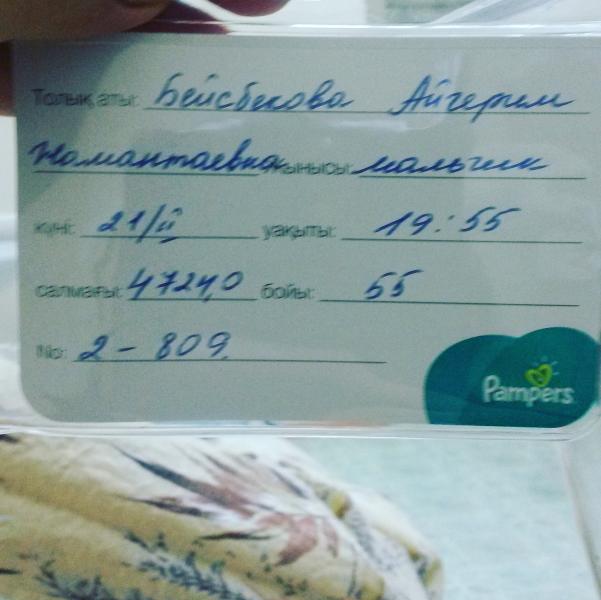 Толық аты: Бейсбекова Айгерим
Жамантаевна жынысы: мальчик
күні: 21/II уақыты: 19:55
салмағы: 4724,0 бойы: 55
No: 2-809.
Pampers